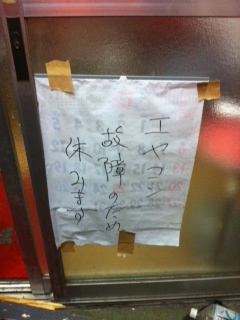 エヤコン
故障のため
休みます